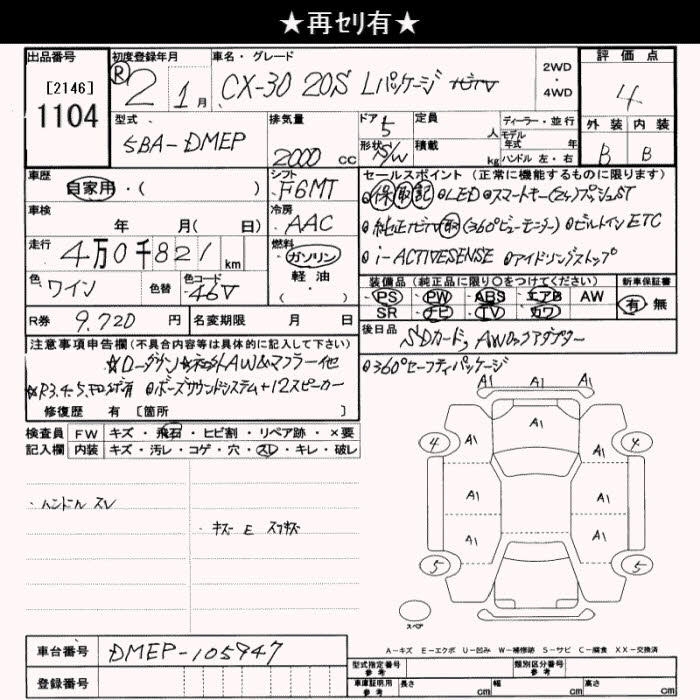 ★再セリ有★
出品番号 初度登録年月 車名・グレード 2WD ・ 4WD 評価点
[2146] 1104 R2 1月 CX-30 20S Lパッケージ 4
型式 排気量 ドア 5 定員 人 ディーラー・並行 外装 内装
5BA-DMEP 2000cc 形状 S/W 積載 kg モデル年式 年 ハンドル 左・右 B B
車歴 シフト セールスポイント (正常に機能するものに限ります)
自家用・( ) F6MT 保 取 記 LED スマートキー(2ヶ)プッシュST
車検 年 月( 日) 冷房 AAC 純正ナビTV 取 (360°ビューモニター) ビルトインETC
走行 4万0千821km 燃料 ガソリン 軽油 ・( ) i-ACTIVESENSE アイドリングストップ
色 ワイン 色替 色コード 46V 装備品 (純正品に限り○をつけてください) 新車保証書
PS PW ABS エアB AW 有 無
SR ナビ TV カワ
R券 9.720円 名変期限 月 日 後日品 SDカード, AWロックアダプター
注意事項申告欄(不具合内容等は具体的に記入して下さい) 360°セーフティパッケージ
☆ローダウン ☆社外AW&マフラー他
ボーズサウンドシステム+12スピーカー
修復歴 有 [箇所 ]
検査員 FW キズ・飛石・ヒビ割・リペア跡・×要
記入欄 内装 キズ・汚レ・コゲ・穴・スレ・キレ・破レ
・ハンドル スレ
・キズ E スリキズ
A1 A1 A1
4 A1 A1 A1 4
A1 A1
A1 A1
5 5
スペア
車台番号 DMEP-105947
A-キズ E-エクボ U-凹み W-補修跡 S-サビ C-腐食 XX-交換済
登録番号 型式指定番号 参考 類別区分番号 参考
車庫証明用 参考 長さ cm 幅 cm 高さ cm